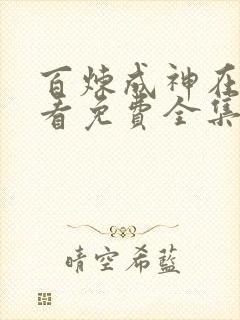 百炼成神在
看免費全集
晴空希藍